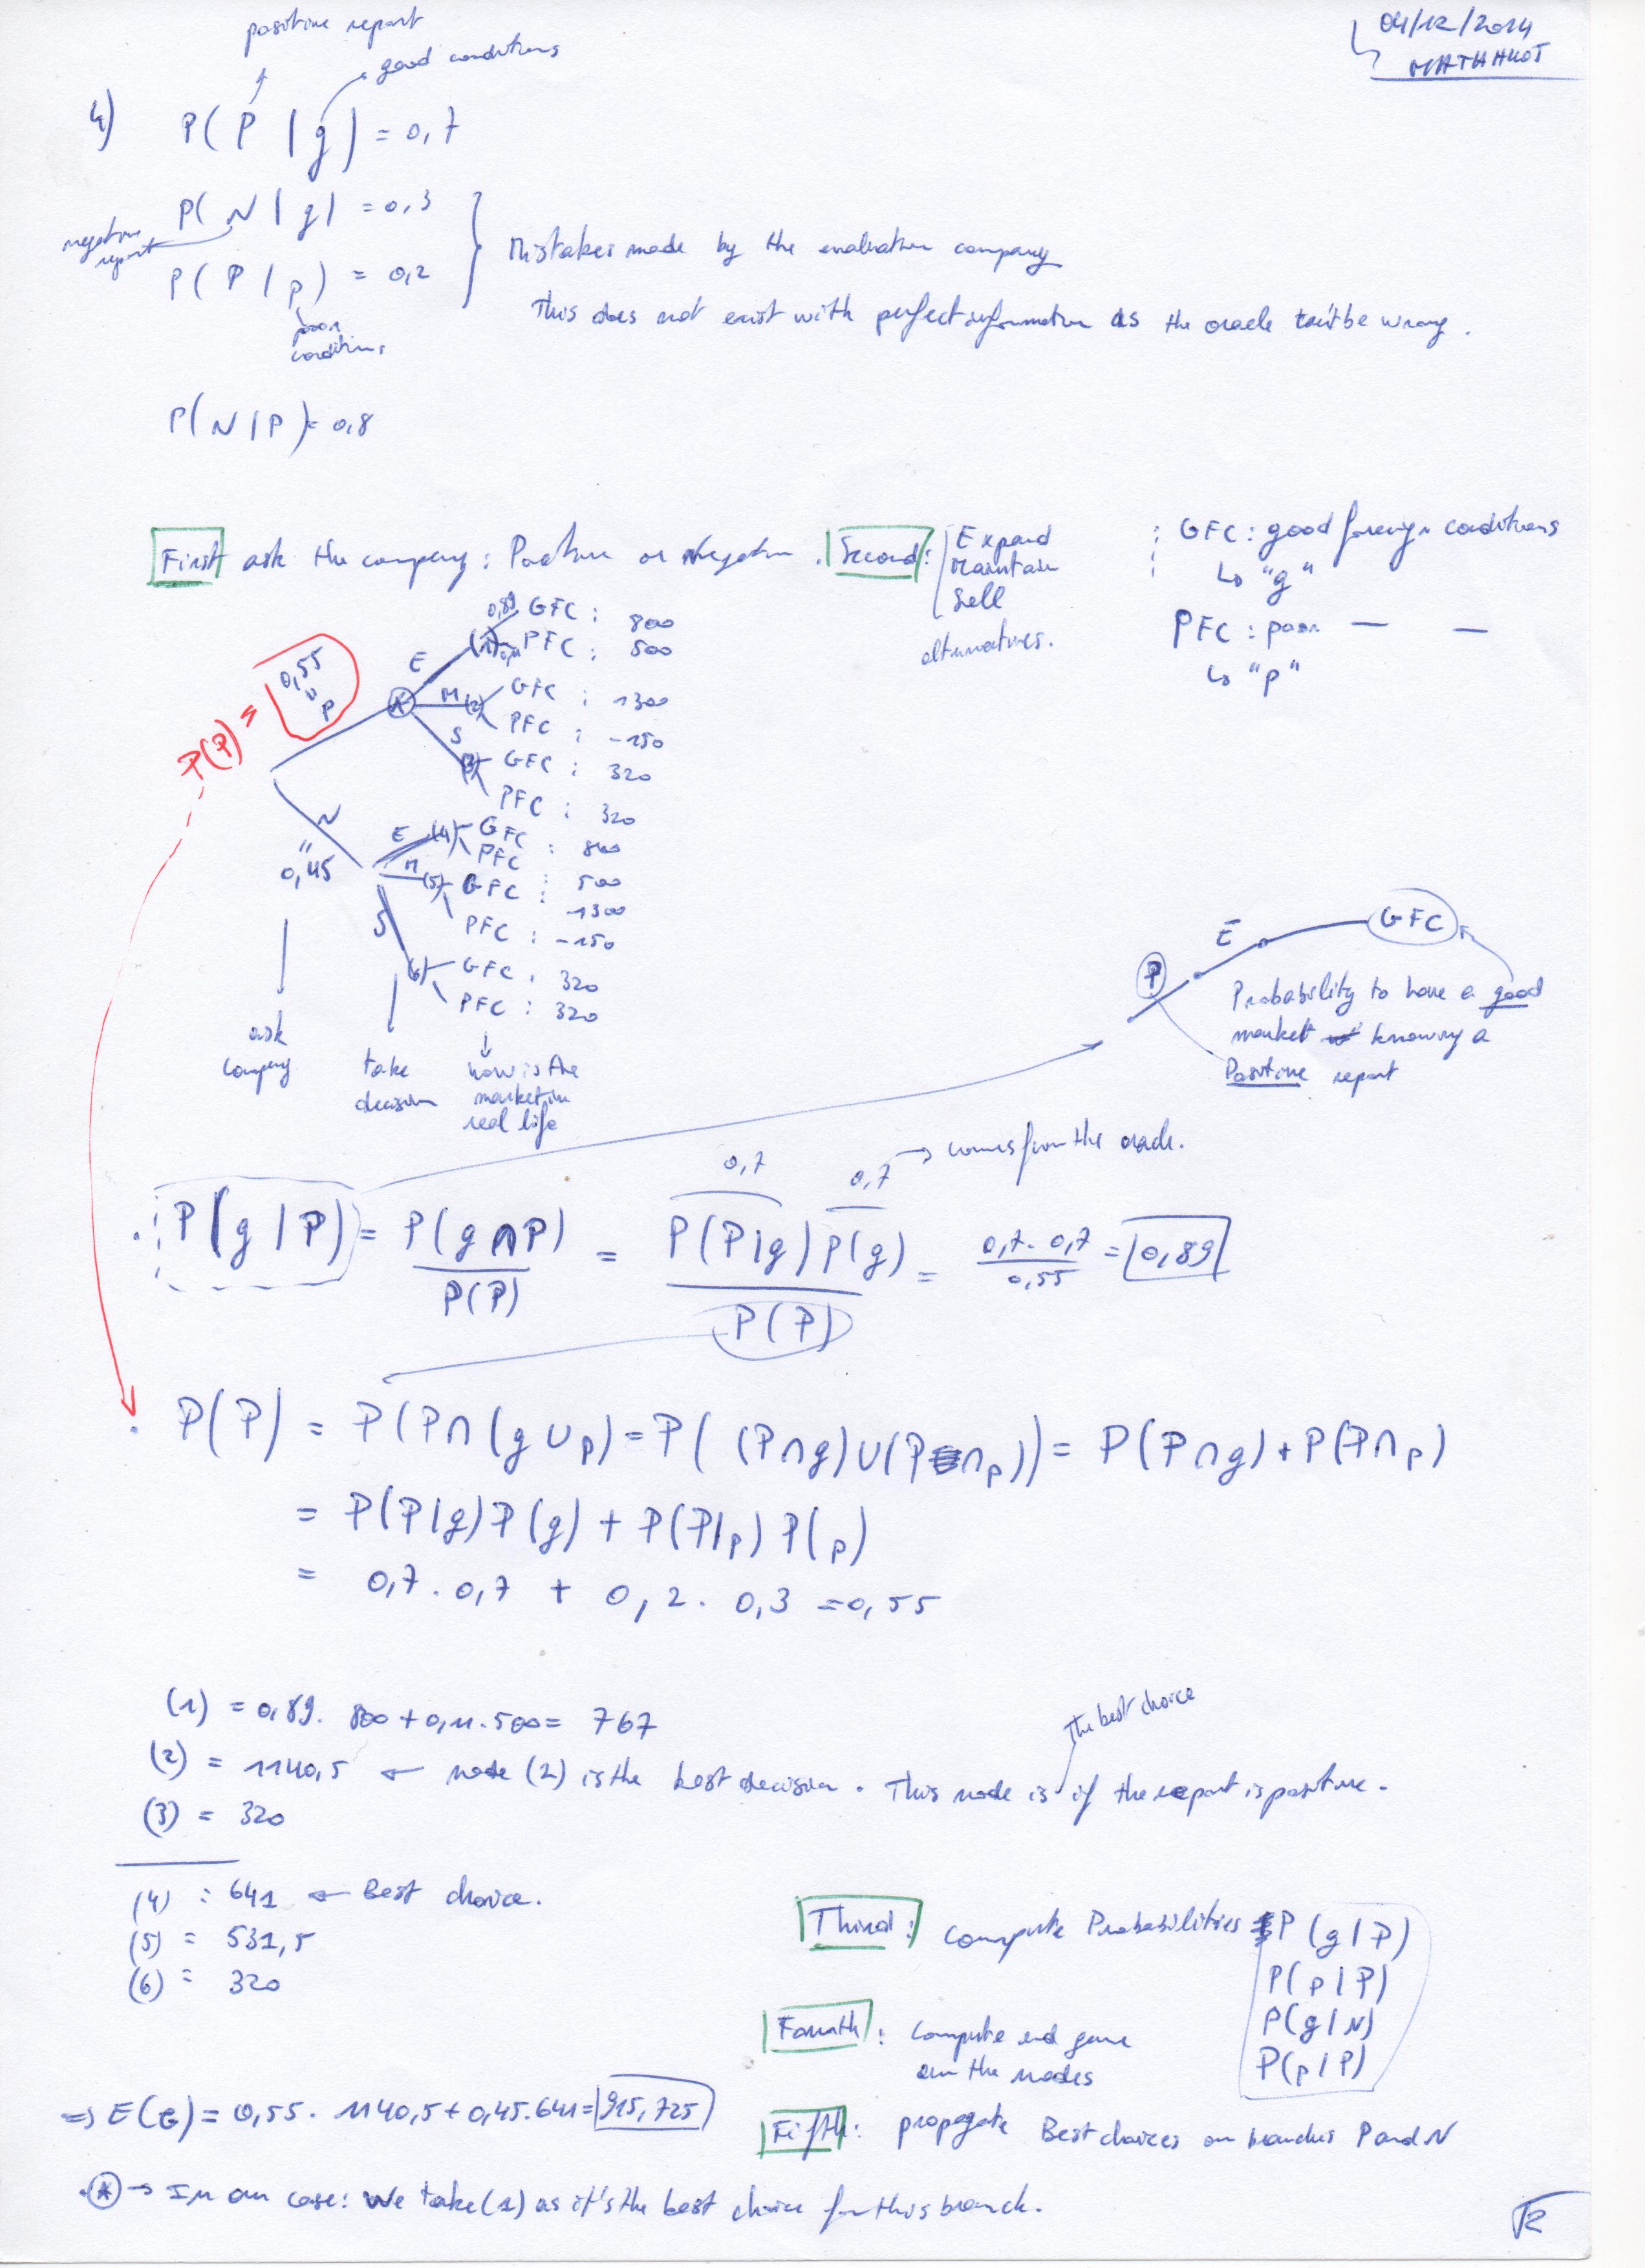 04/12/2014
positive report
good conditions
4) P(P|g) = 0,7
P(N|g) = 0,3
negative report
P(P|p) = 0,2
poor conditions
Mistakes made by the evaluation company
This does not exist with perfect information as the oracle can't be wrong.
P(N|P) = 0,8
First ask the company: Positive or Negative. Second: Expand
Maintain
Sell
alternatives.
GFC: good foreign conditions
↳ "g"
PFC: poor — —
↳ "p"
P(P) = 0,55 = P
E (1) 0,89 GFC : 800
0,11 PFC : 500
M (2) GFC : 1300
PFC : -150
S (3) GFC : 320
PFC : 320
N = 0,45
E (4) GFC : 800
PFC : 500
M (5) GFC : 1300
PFC : -150
S (6) GFC : 320
PFC : 320
ask company
take decision
how is the market in real life
P E GFC
Probability to have a good
market knowing a
Positive report
0,7 0,7 → comes from the oracle.
. P(g|P) = P(g∩P) / P(P) = P(P|g)P(g) / P(P) = 0,7 . 0,7 / 0,55 = 0,89
. P(P) = P(P∩(g∪p) = P((P∩g)∪(P∩p)) = P(P∩g) + P(P∩p)
= P(P|g)P(g) + P(P|p)P(p)
= 0,7 . 0,7 + 0,2 . 0,3 = 0,55
(1) = 0,89. 800 + 0,11 . 500 = 767
(2) = 1140,5 ← node (2) is the best decision. This node is the best choice if the report is positive.
(3) = 320
(4) : 641 ← Best choice.
(5) = 531,5
(6) = 320
Third: Compute Probabilities P(g|P)
P(p|P)
P(g|N)
P(p|P)
Fourth: compute end game
on the nodes
⇒ E(G) = 0,55 . 1140,5 + 0,45 . 641 = 915,725
Fifth: propagate Best choices on branches P and N
* → In our case: We take (2) as it's the best choice for this branch.